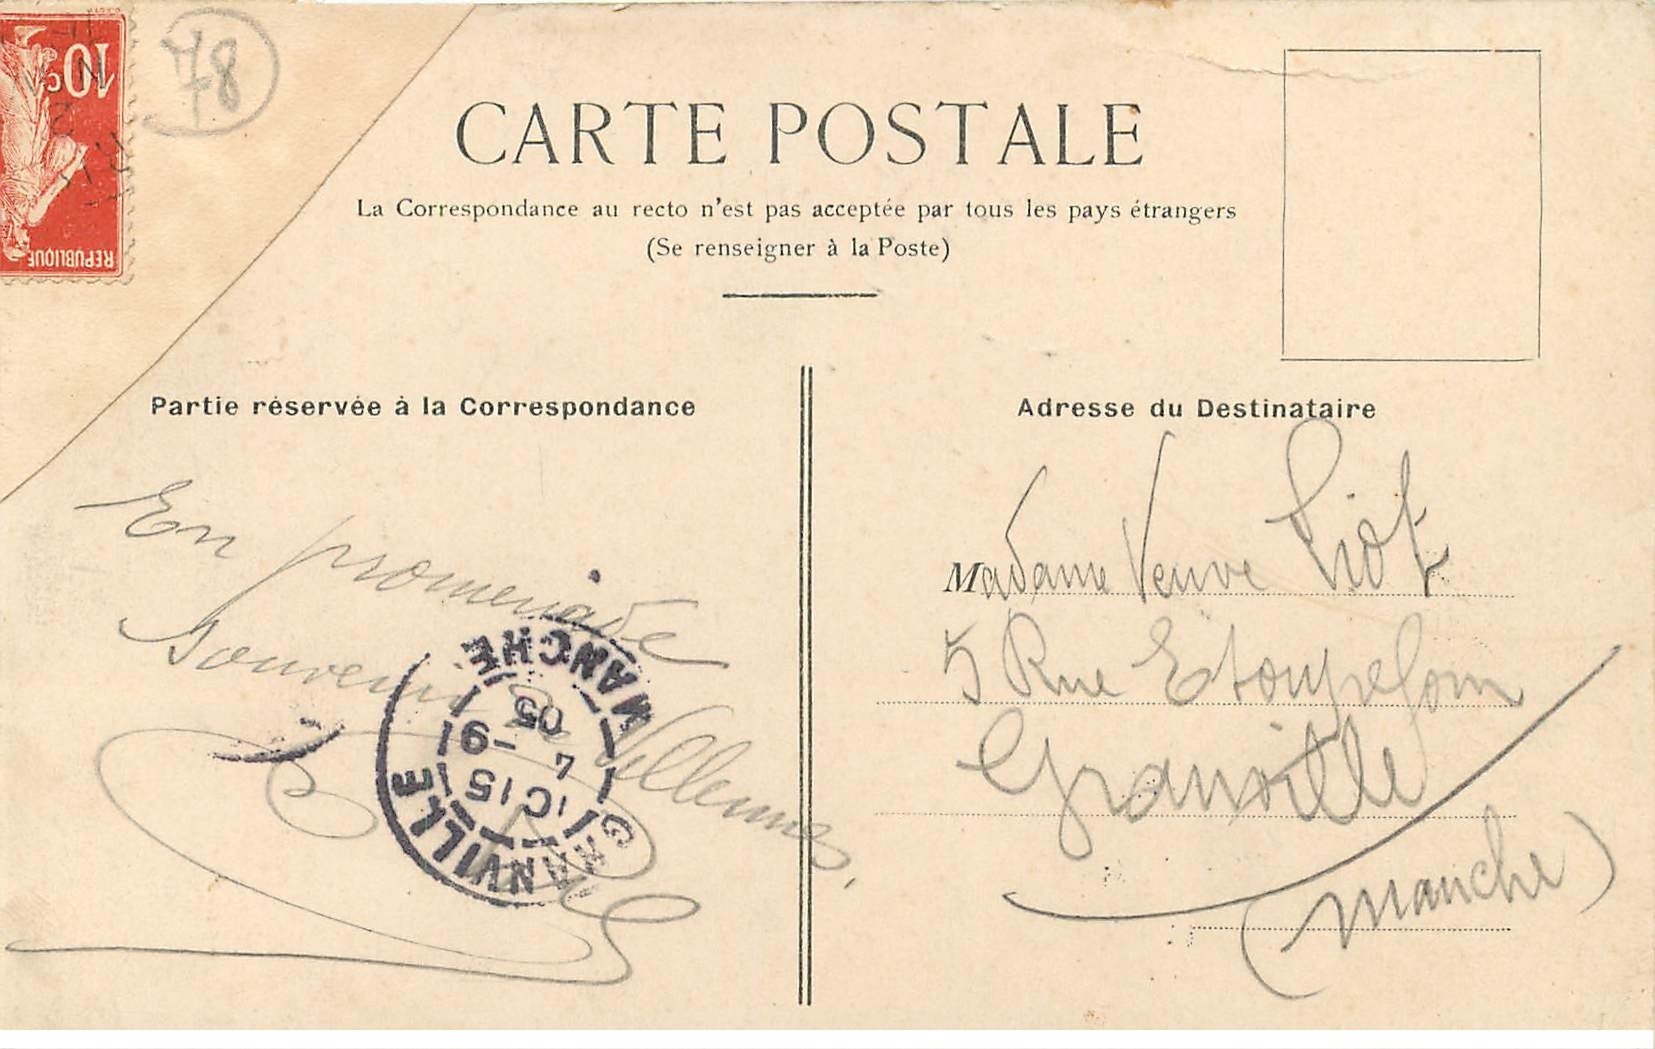 10c
REPUBLIQUE
78
CARTE POSTALE
La Correspondance au recto n'est pas acceptée par tous les pays étrangers
(Se renseigner à la Poste)
Partie réservée à la Correspondance
En promenade
Souvenir de Villennes.
GRANVILLE
MANCHE
10 15
4 -9
05
Adresse du Destinataire
Madame Veuve Liot
5 Rue Etoupefour
Granville
(Manche)